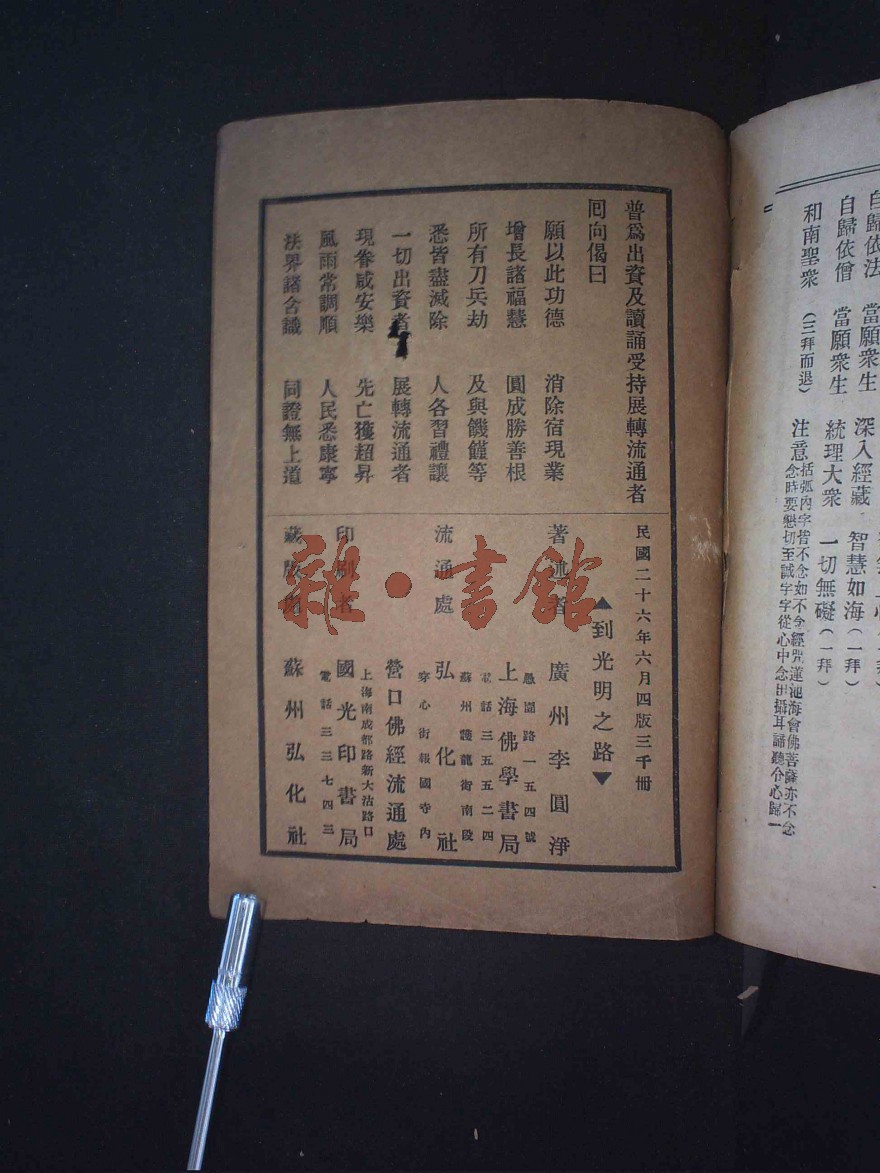 自歸依法　當願衆生　深入經藏　智慧如海（一拜）
自歸依僧　當願衆生　統理大衆　一切無礙（一拜）
和南聖衆（三拜而退）
注意　括弧內字皆不念如不念經咒蓮池海會佛菩薩亦不念
念時要懇切至誠字字從心中念出攝耳諦聽令心歸一
普爲出資及讀誦受持展轉流通者
回向偈曰
願以此功德　消除宿現業
增長諸福慧　圓成勝善根
所有刀兵劫　及與饑饉等
悉皆盡滅除　人各習禮讓
一切出資者　展轉流通者
現眷咸安樂　先亡獲超昇
風雨常調順　人民悉康寧
法界諸含識　同證無上道
民國二十六年六月四版三千冊
▲到光明之路▼
著述者　廣州李圓淨
愚園路一五四號
流通處　上海佛學書局
電話三五五二四
蘇州護龍街南段
弘化社
穿心街報國寺內
營口佛經流通處
上海南成都路新大沽路口
印刷者　國光印書局
電話三三七四三
藏版處　蘇州弘化社
雜·書館